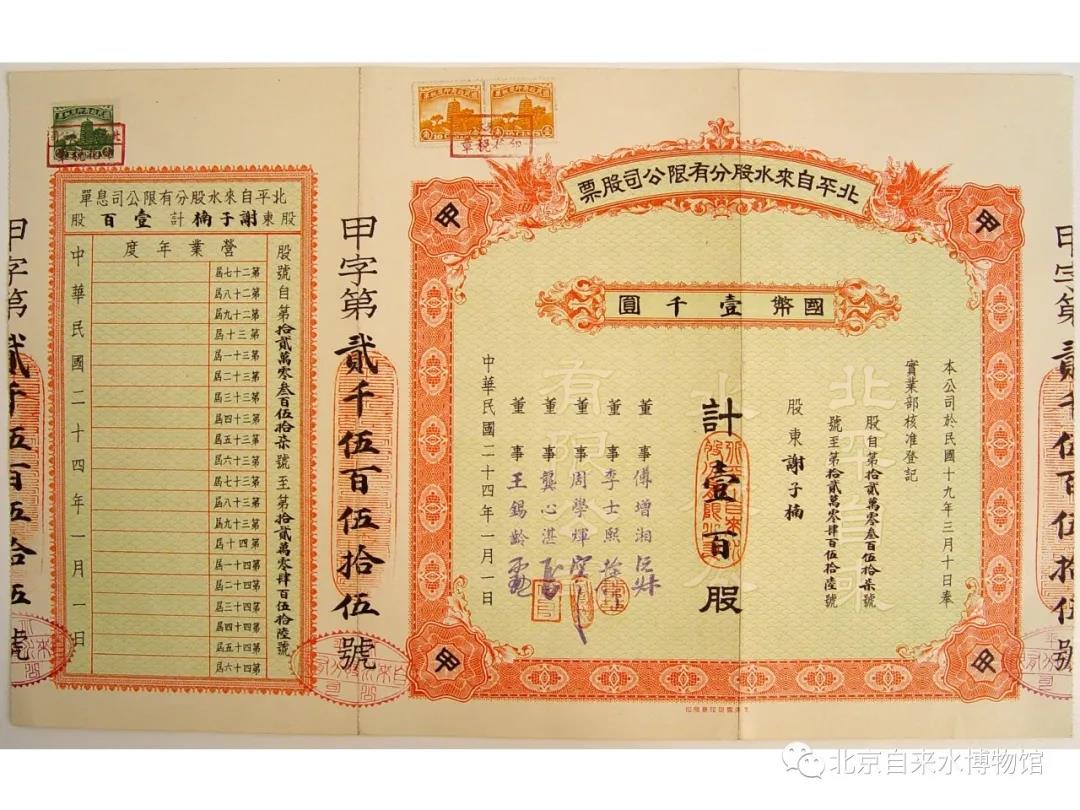 北平自來水股分有限公司股票
甲
甲
國幣壹千圓
本公司於民國十九年三月十日奉
實業部核准登記
股自第拾貳萬零叁百伍拾柒號
號至第拾貳萬零肆百伍拾陸號
股東謝子楠
計壹百股
董事傅增湘
董事李士熙
董事周學煇
董事龔心湛
董事王錫齡
中華民國二十四年一月一日
甲
甲
甲字第貳千伍百伍拾伍號
北平自來水股分有限公司息單
股東謝子楠計壹百股
股號自第拾貳萬零叁百伍拾柒號至第拾貳萬零肆百伍拾陸號
營業年度
第二十七屆
第二十八屆
第二十九屆
第三十屆
第三十一屆
第三十二屆
第三十三屆
第三十四屆
第三十五屆
第三十六屆
第三十七屆
第三十八屆
第三十九屆
第四十屆
第四十一屆
第四十二屆
第四十三屆
第四十四屆
第四十五屆
第四十六屆
中華民國二十四年一月一日
甲字第貳千伍百伍拾伍號
北京自来水博物馆